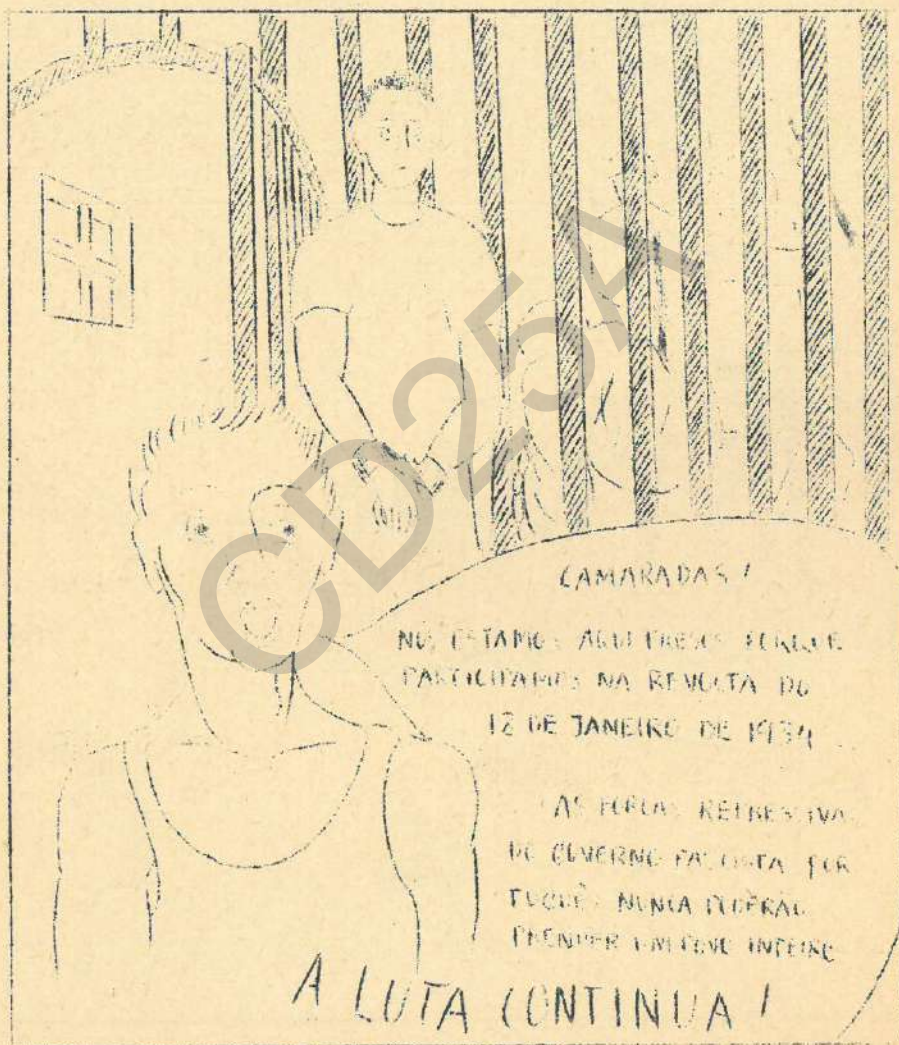 CAMARADAS!
NÓS ESTAMOS AQUI PRESOS PORQUE
PARTICIPAMOS NA REVOLTA DO
DE JANEIRO DE 1934
AS FORÇAS REPRESSIVAS
DO GOVERNO FASCISTA POR
TUGUÊS NUNCA PODERÃO
PRENDER UM POVO INTEIRO
A LUTA CONTINUA!
CD25A